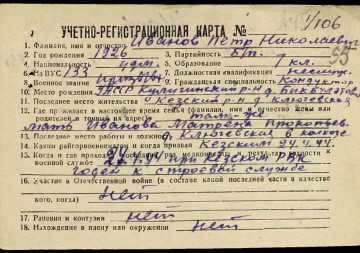 1/106
УЧЕТНО-РЕГИСТРАЦИОННАЯ КАРТА №
55
1. Фамилия, имя и отчество Иванов Петр Николаевич
2. Год рождения 1926 3. Партийность б/п.
4. Национальность удм. 5. Образование 1 кл.
6. На ВУС 133 7. Должностная квалификация
8. Военное звание 9. Гражданская специальность Кондуктор
10. Место рождения УАССР Кулигинский р-н д.
11. Последнее место жительства Кезский р-н д. Ключевская
12. Где проживает в настоящее время семья (фамилия, имя и отчество жены или
родителей и точный их адрес) там же
мать Иванова
13. Последнее место работы и должность д. Ключевская в колхозе
14. Каким райгорвоенкоматом и когда призван Кезским 24.4.44.
15. Где и когда проходил
военной службе при Кезском РВК
годен к строевой службе
16. Участие в Отечественной войне (в составе какой части и в качестве
кого, когда) нет
17. Ранения и контузии нет
18. Нахождение в плену или окружении нет